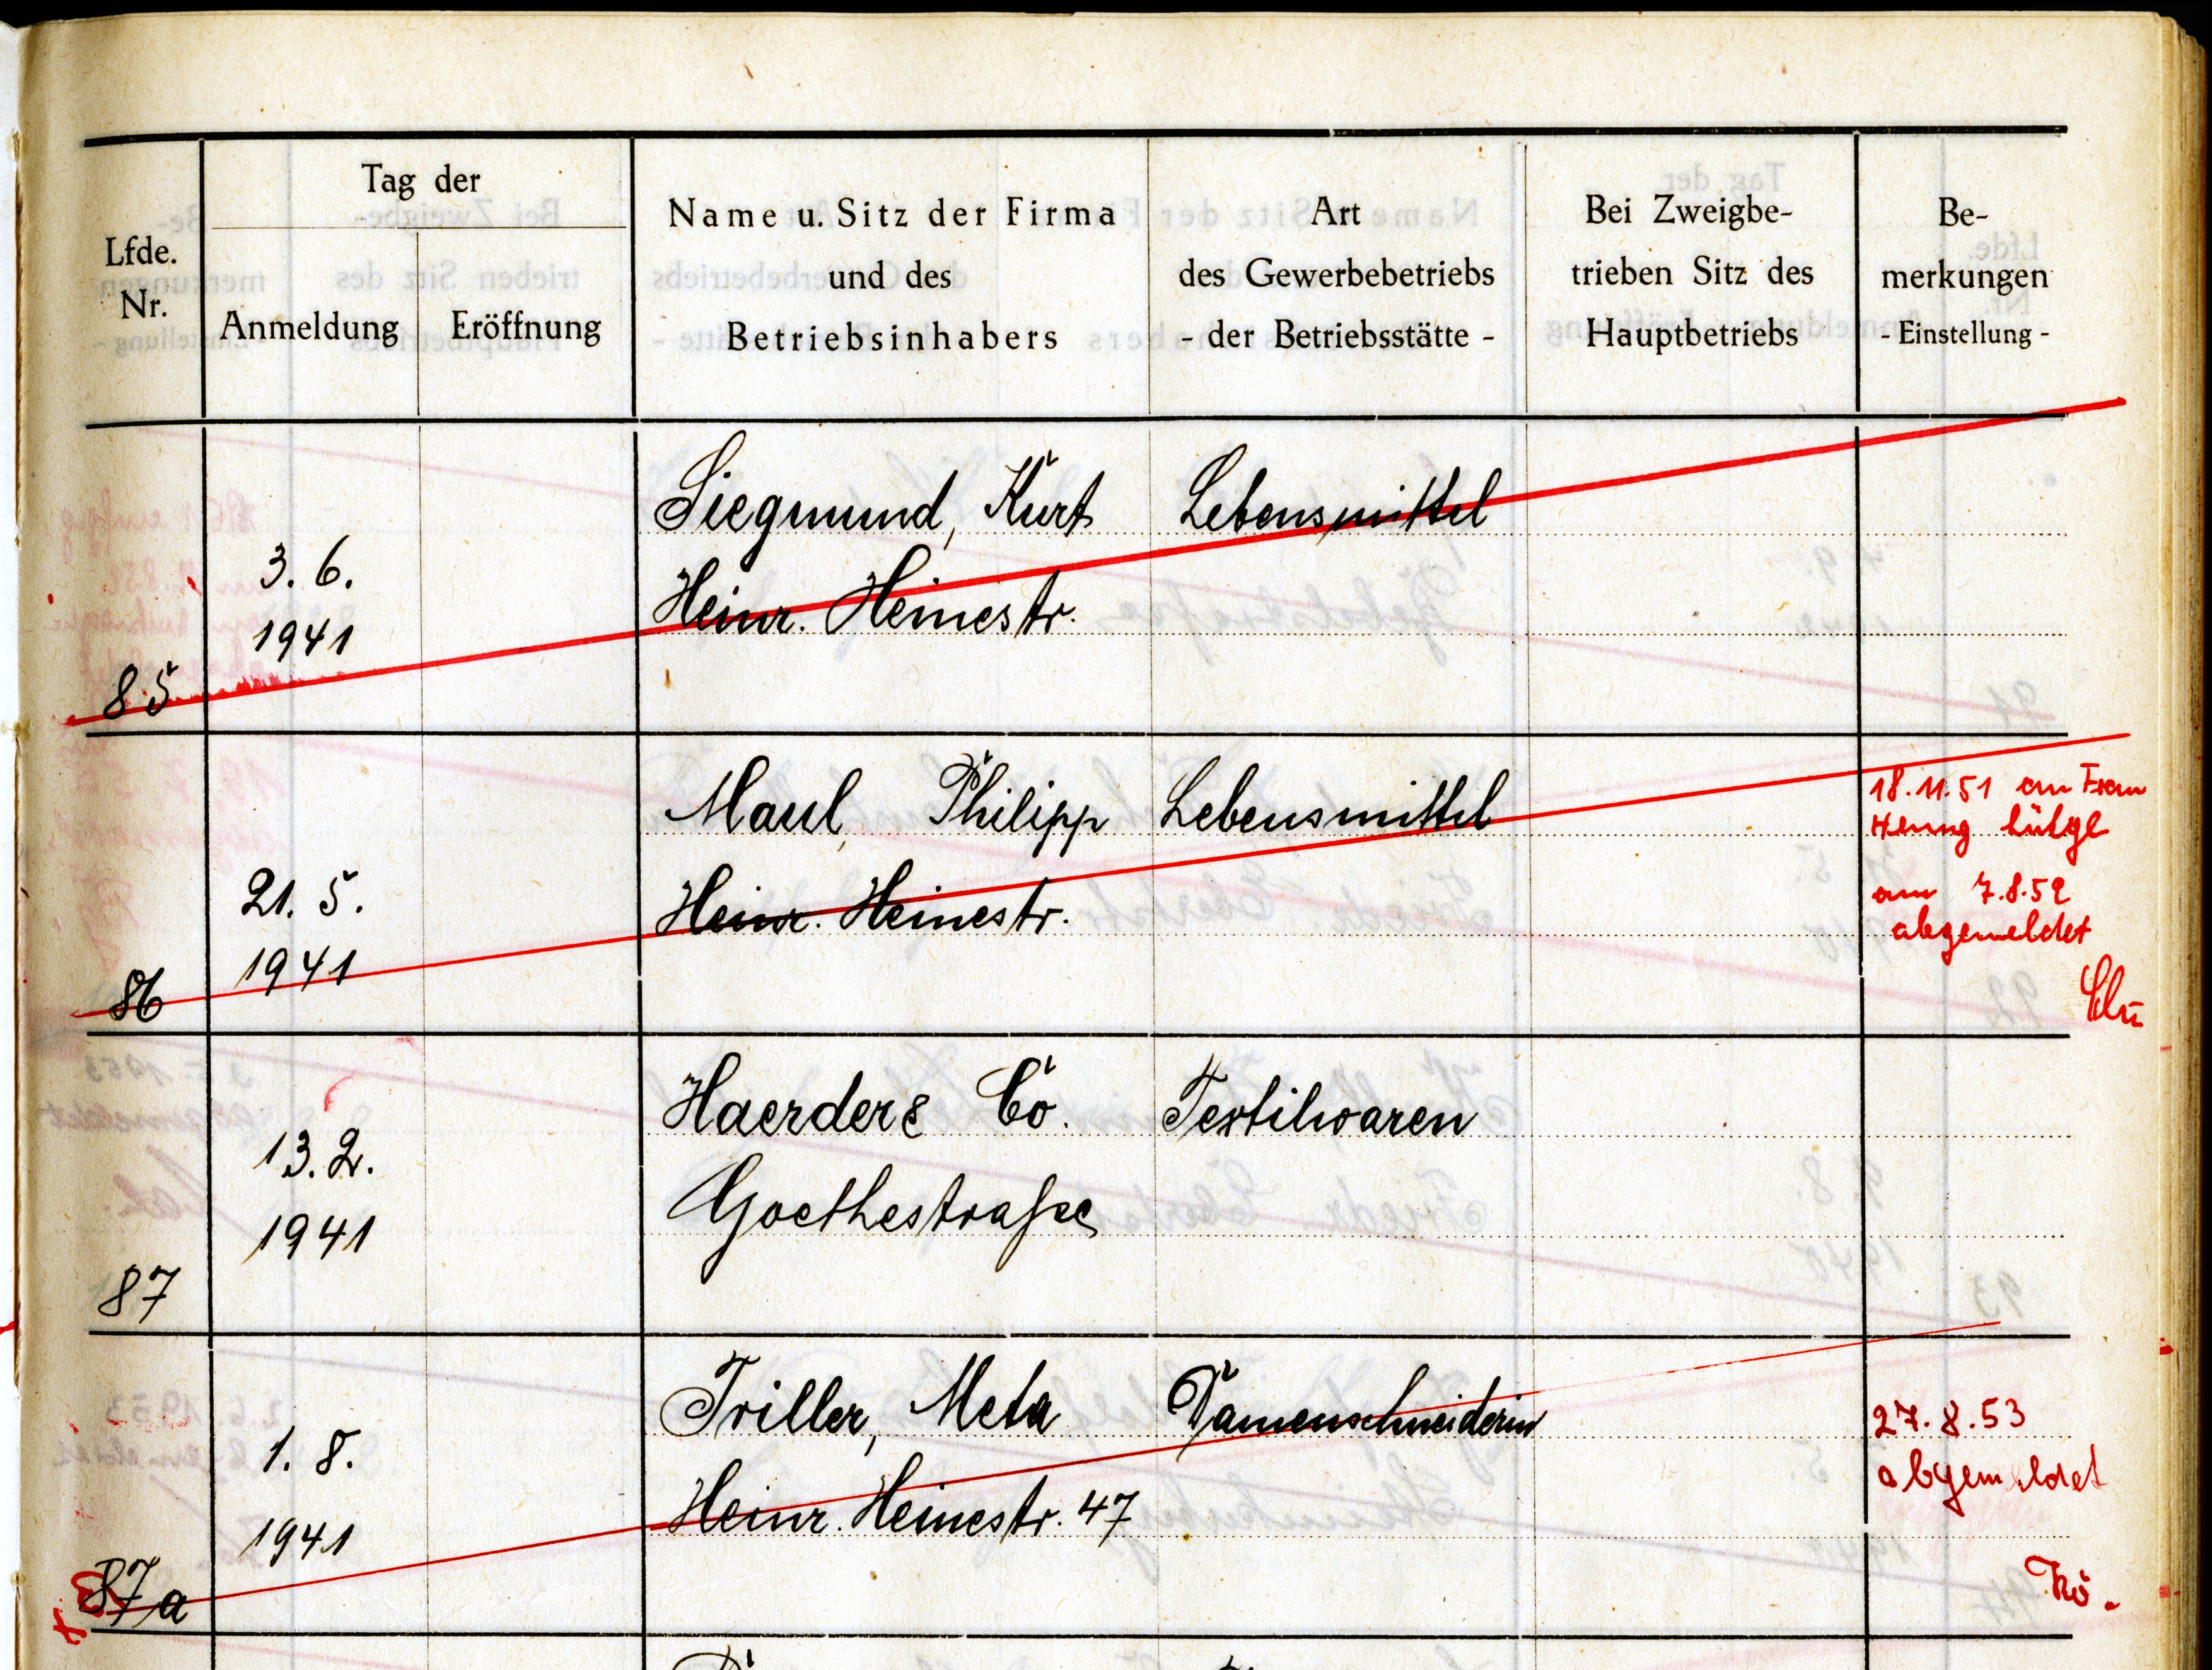 Lfde. Nr.
Tag der
Anmeldung
Eröffnung
Name u. Sitz der Firma
und des
Betriebsinhabers
Art
des Gewerbebetriebs
- der Betriebsstätte -
Bei Zweigbe-
trieben Sitz des
Hauptbetriebs
Be-
merkungen
- Einstellung -
85
3. 6.
1941
Siegmund, Kurt
Heinr. Heinestr.
Lebensmittel
86
21. 5.
1941
Maul, Philipp
Heinr. Heinestr.
Lebensmittel
18.11.51 an Frau
am 7.8.52
abgemeldet
87
13. 2.
1941
Haerder & Co.
Goethestraße
Textilwaren
87a
1. 8.
1941
Triller, Meta
Heinr. Heinestr. 47
Damenschneiderin
27.8.53
abgemeldet